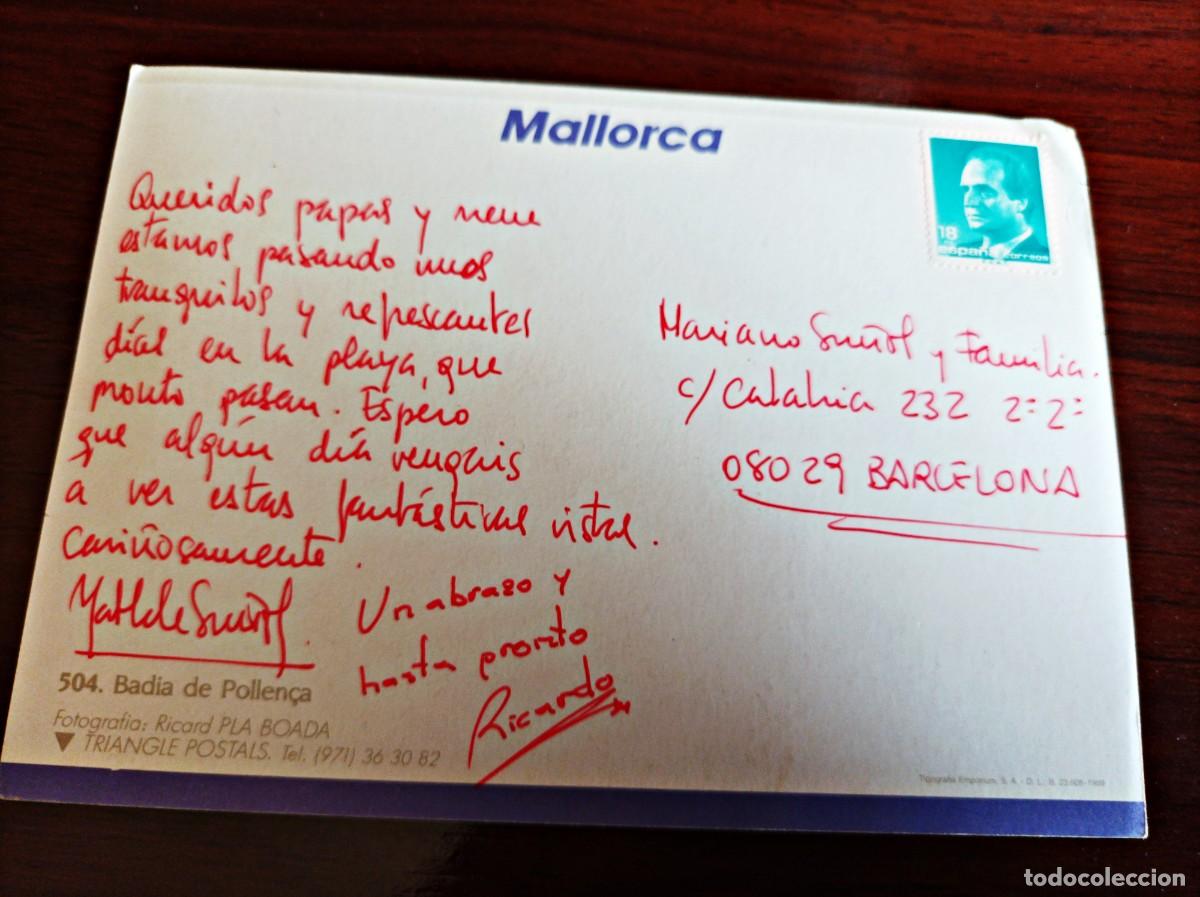 Mallorca
18
españa correos
Queridos papas y nene
estamos pasando unos
tranquilos y refrescantes
días en la playa, que
pronto pasan. Espero
que algún día vengais
a ver estas fantásticas vistas.
Cariñosamente.
Matilde Suñol.
Un abrazo y
hasta pronto
Ricardo
Mariano Suñol y Familia.
c/ Calabria 232 2º 2º
08029 BARCELONA
504. Badia de Pollença
Fotografia: Ricard PLA BOADA
▼ TRIANGLE POSTALS. Tel. (971) 36 30 82
Tipografia Emporium, S. A. - D. L. B.
todocoleccion